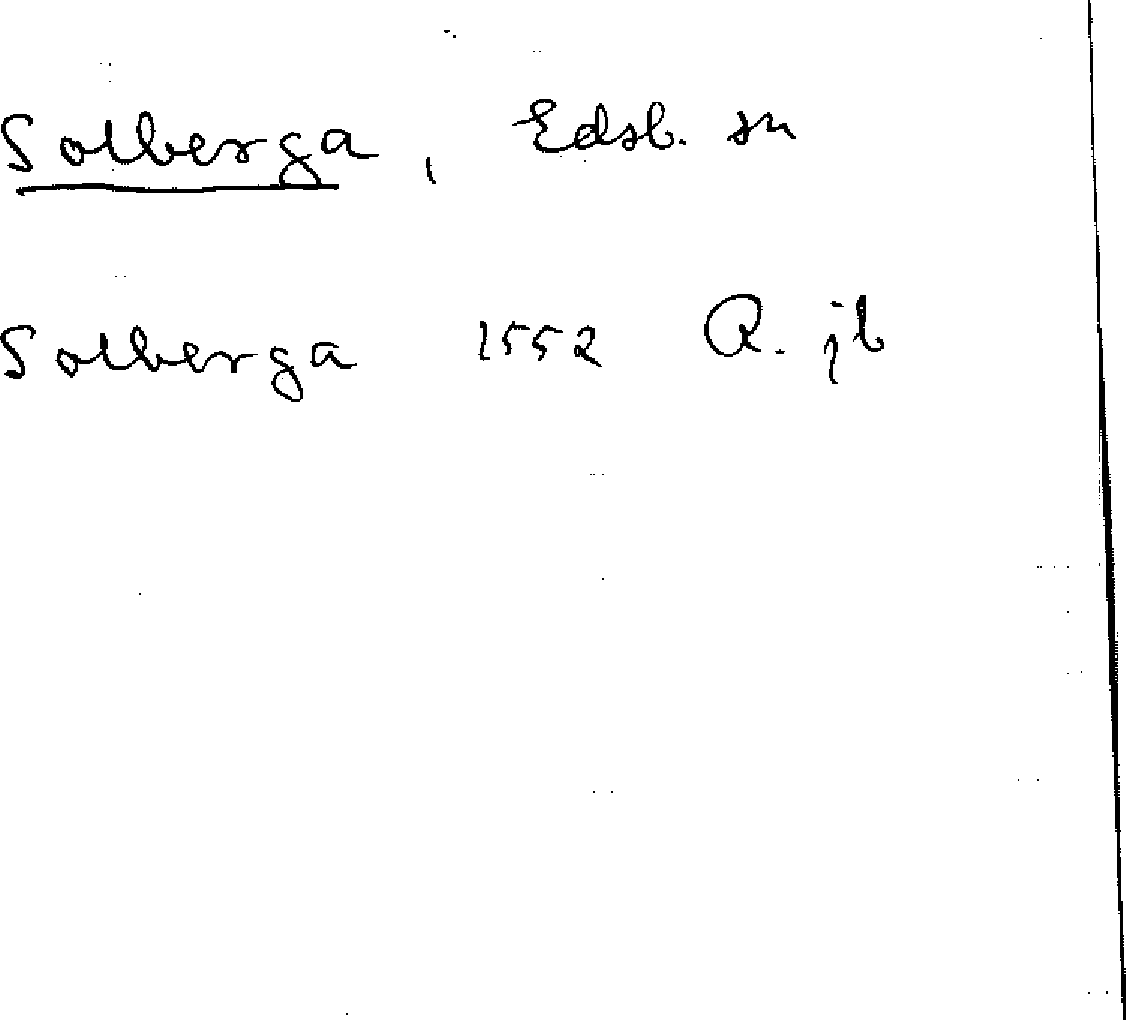 Solberga, Edsb. sn
Solberga 1552 R. jb